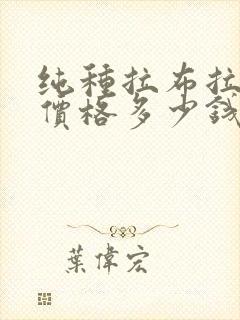 纯種拉布拉
價格多少錢
葉偉宏